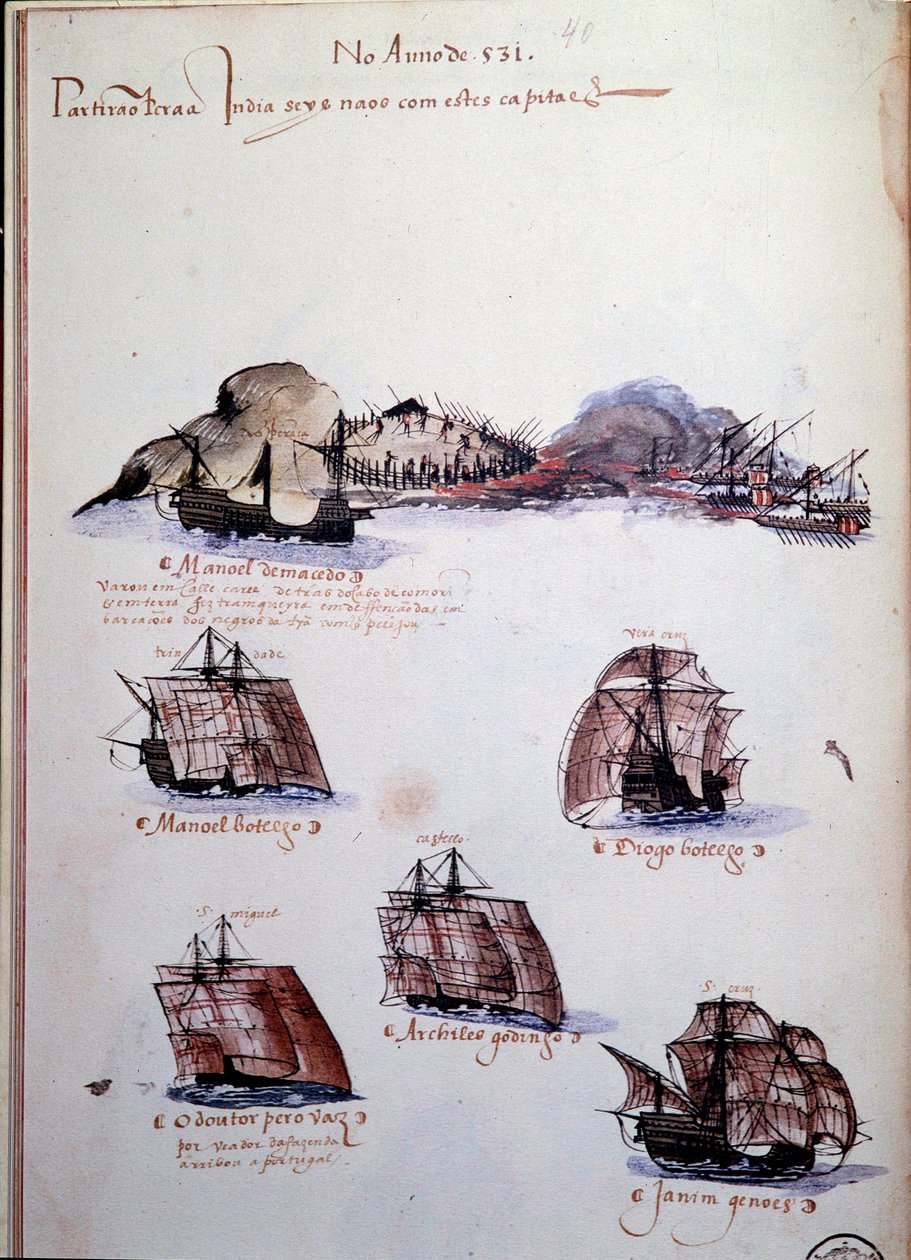 40
No Anno de 531.
Partirão pera a India seys naos com estes capitaẽs
Manoel de macedo
varou em Calle caree detrás do Cabo de comori
e em terra fez tramqueyra em deffenção das em
barcações dos negros da trã
trin dade
vera cruz
Manoel botelho
Diogo botelho
castello
S. miguel
Archiles godinho
S. cruz
O doutor pero vaz
por veador da fazenda
arribou a portugal
Janim genoes